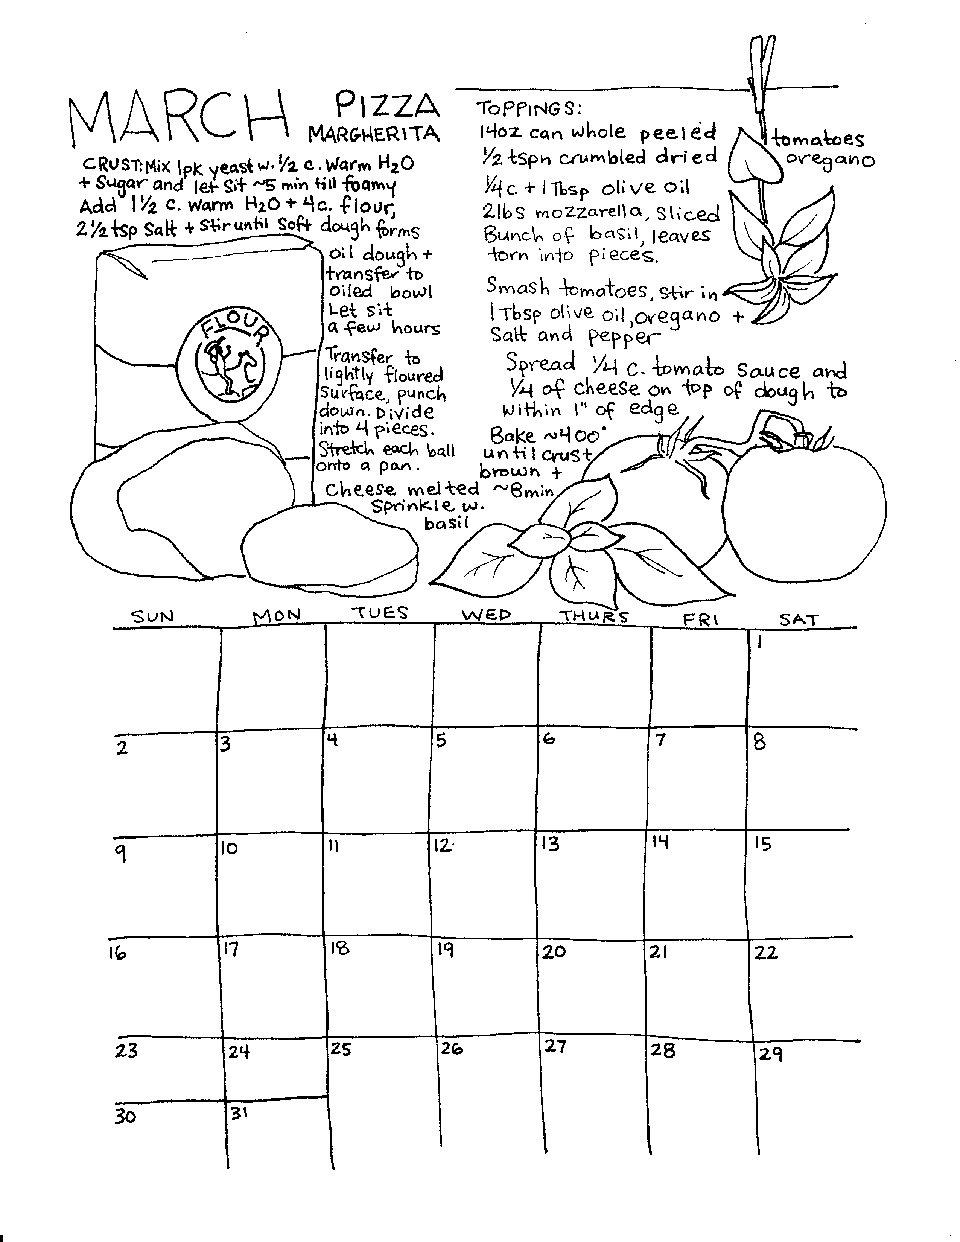 MARCH
PIZZA
MARGHERITA
CRUST: Mix 1pk yeast w. 1/2 c. warm H2O
+ Sugar and let sit ~5 min till foamy
Add 1 1/2 c. warm H2O + 4c. flour,
2 1/2 tsp Salt + Stir until Soft dough forms
oil dough +
transfer to
oiled bowl
Let sit
a few hours
Transfer to
lightly floured
Surface, punch
down. Divide
into 4 pieces.
Stretch each ball
onto a pan.
FLOUR
TOPPINGS:
14oz can whole peeled tomatoes
1/2 tspn crumbled dried oregano
1/4 c + 1 Tbsp olive oil
2lbs mozzarella, sliced
Bunch of basil, leaves
torn into pieces.
Smash tomatoes, stir in
1 Tbsp olive oil, oregano +
Salt and pepper
Spread 1/4 c. tomato sauce and
1/4 of cheese on top of dough to
within 1" of edge
Bake ~400°
until crust
brown +
Cheese melted ~8min
Sprinkle w.
basil
SUN MON TUES WED THURS FRI SAT
1
2 3 4 5 6 7 8
9 10 11 12 13 14 15
16 17 18 19 20 21 22
23 24 25 26 27 28 29
30 31